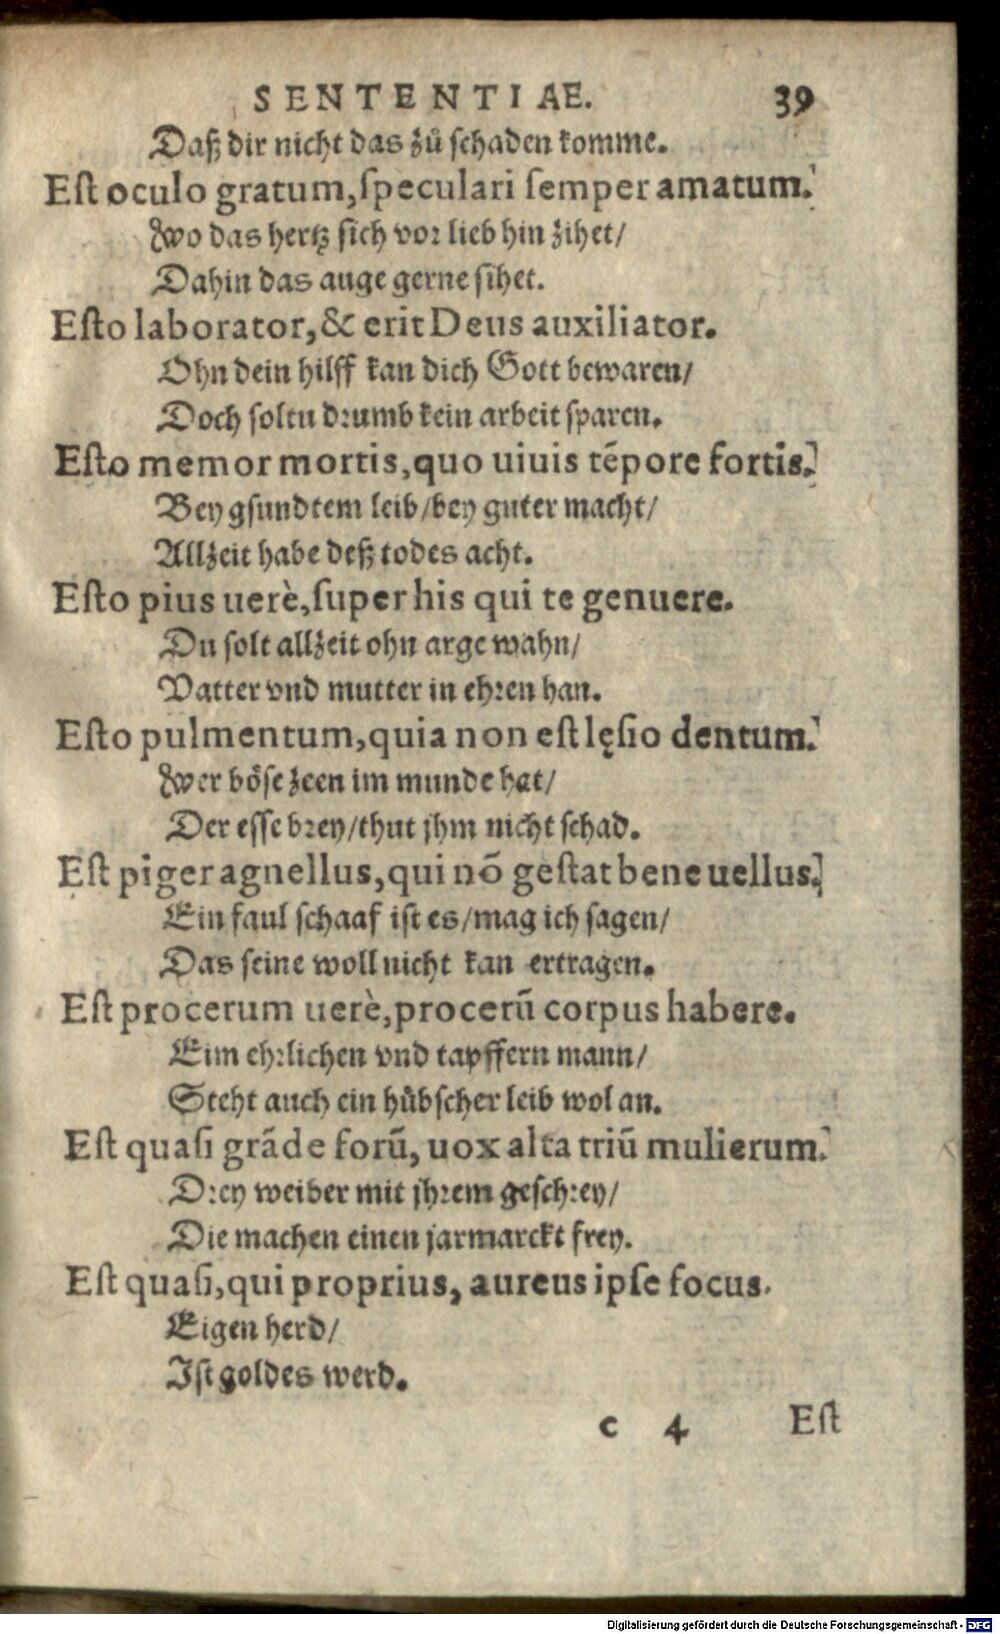 SENTENTIAE. 39
Daß dir nicht das zů schaden komme.
Est oculo gratum, speculari semper amatum.
Wo das hertz sich vor lieb hin zihet/
Dahin das auge gerne sihet.
Esto laborator, & erit Deus auxiliator.
Ohn dein hilff kan dich Gott bewaren/
Doch soltu drumb kein arbeit sparen.
Esto memor mortis, quo uiuis tẽpore fortis.
Bey gsundtem leib/bey guter macht/
Allzeit habe deß todes acht.
Esto pius uerè, super his qui te genuere.
Du solt allzeit ohn arge wahn/
Vatter vnd mutter in ehren han.
Esto pulmentum, quia non est lęsio dentum.
Wer böse zeen im munde hat/
Der esse brey/thut jhm nicht schad.
Est piger agnellus, qui nõ gestat bene uellus.
Ein faul schaaf ist es/mag ich sagen/
Das seine woll nicht kan ertragen.
Est procerum uerè, procerũ corpus habere.
Eim ehrlichen vnd tapffern mann/
Steht auch ein hübscher leib wol an.
Est quasi grãde forũ, uox alta triũ mulierum.
Drey weiber mit jhrem geschrey/
Die machen einen jarmarckt frey.
Est quasi, qui proprius, aureus ipse focus.
Eigen herd/
Ist goldes werd.
c 4 Est
Digitalisierung gefördert durch die Deutsche Forschungsgemeinschaft - DFG